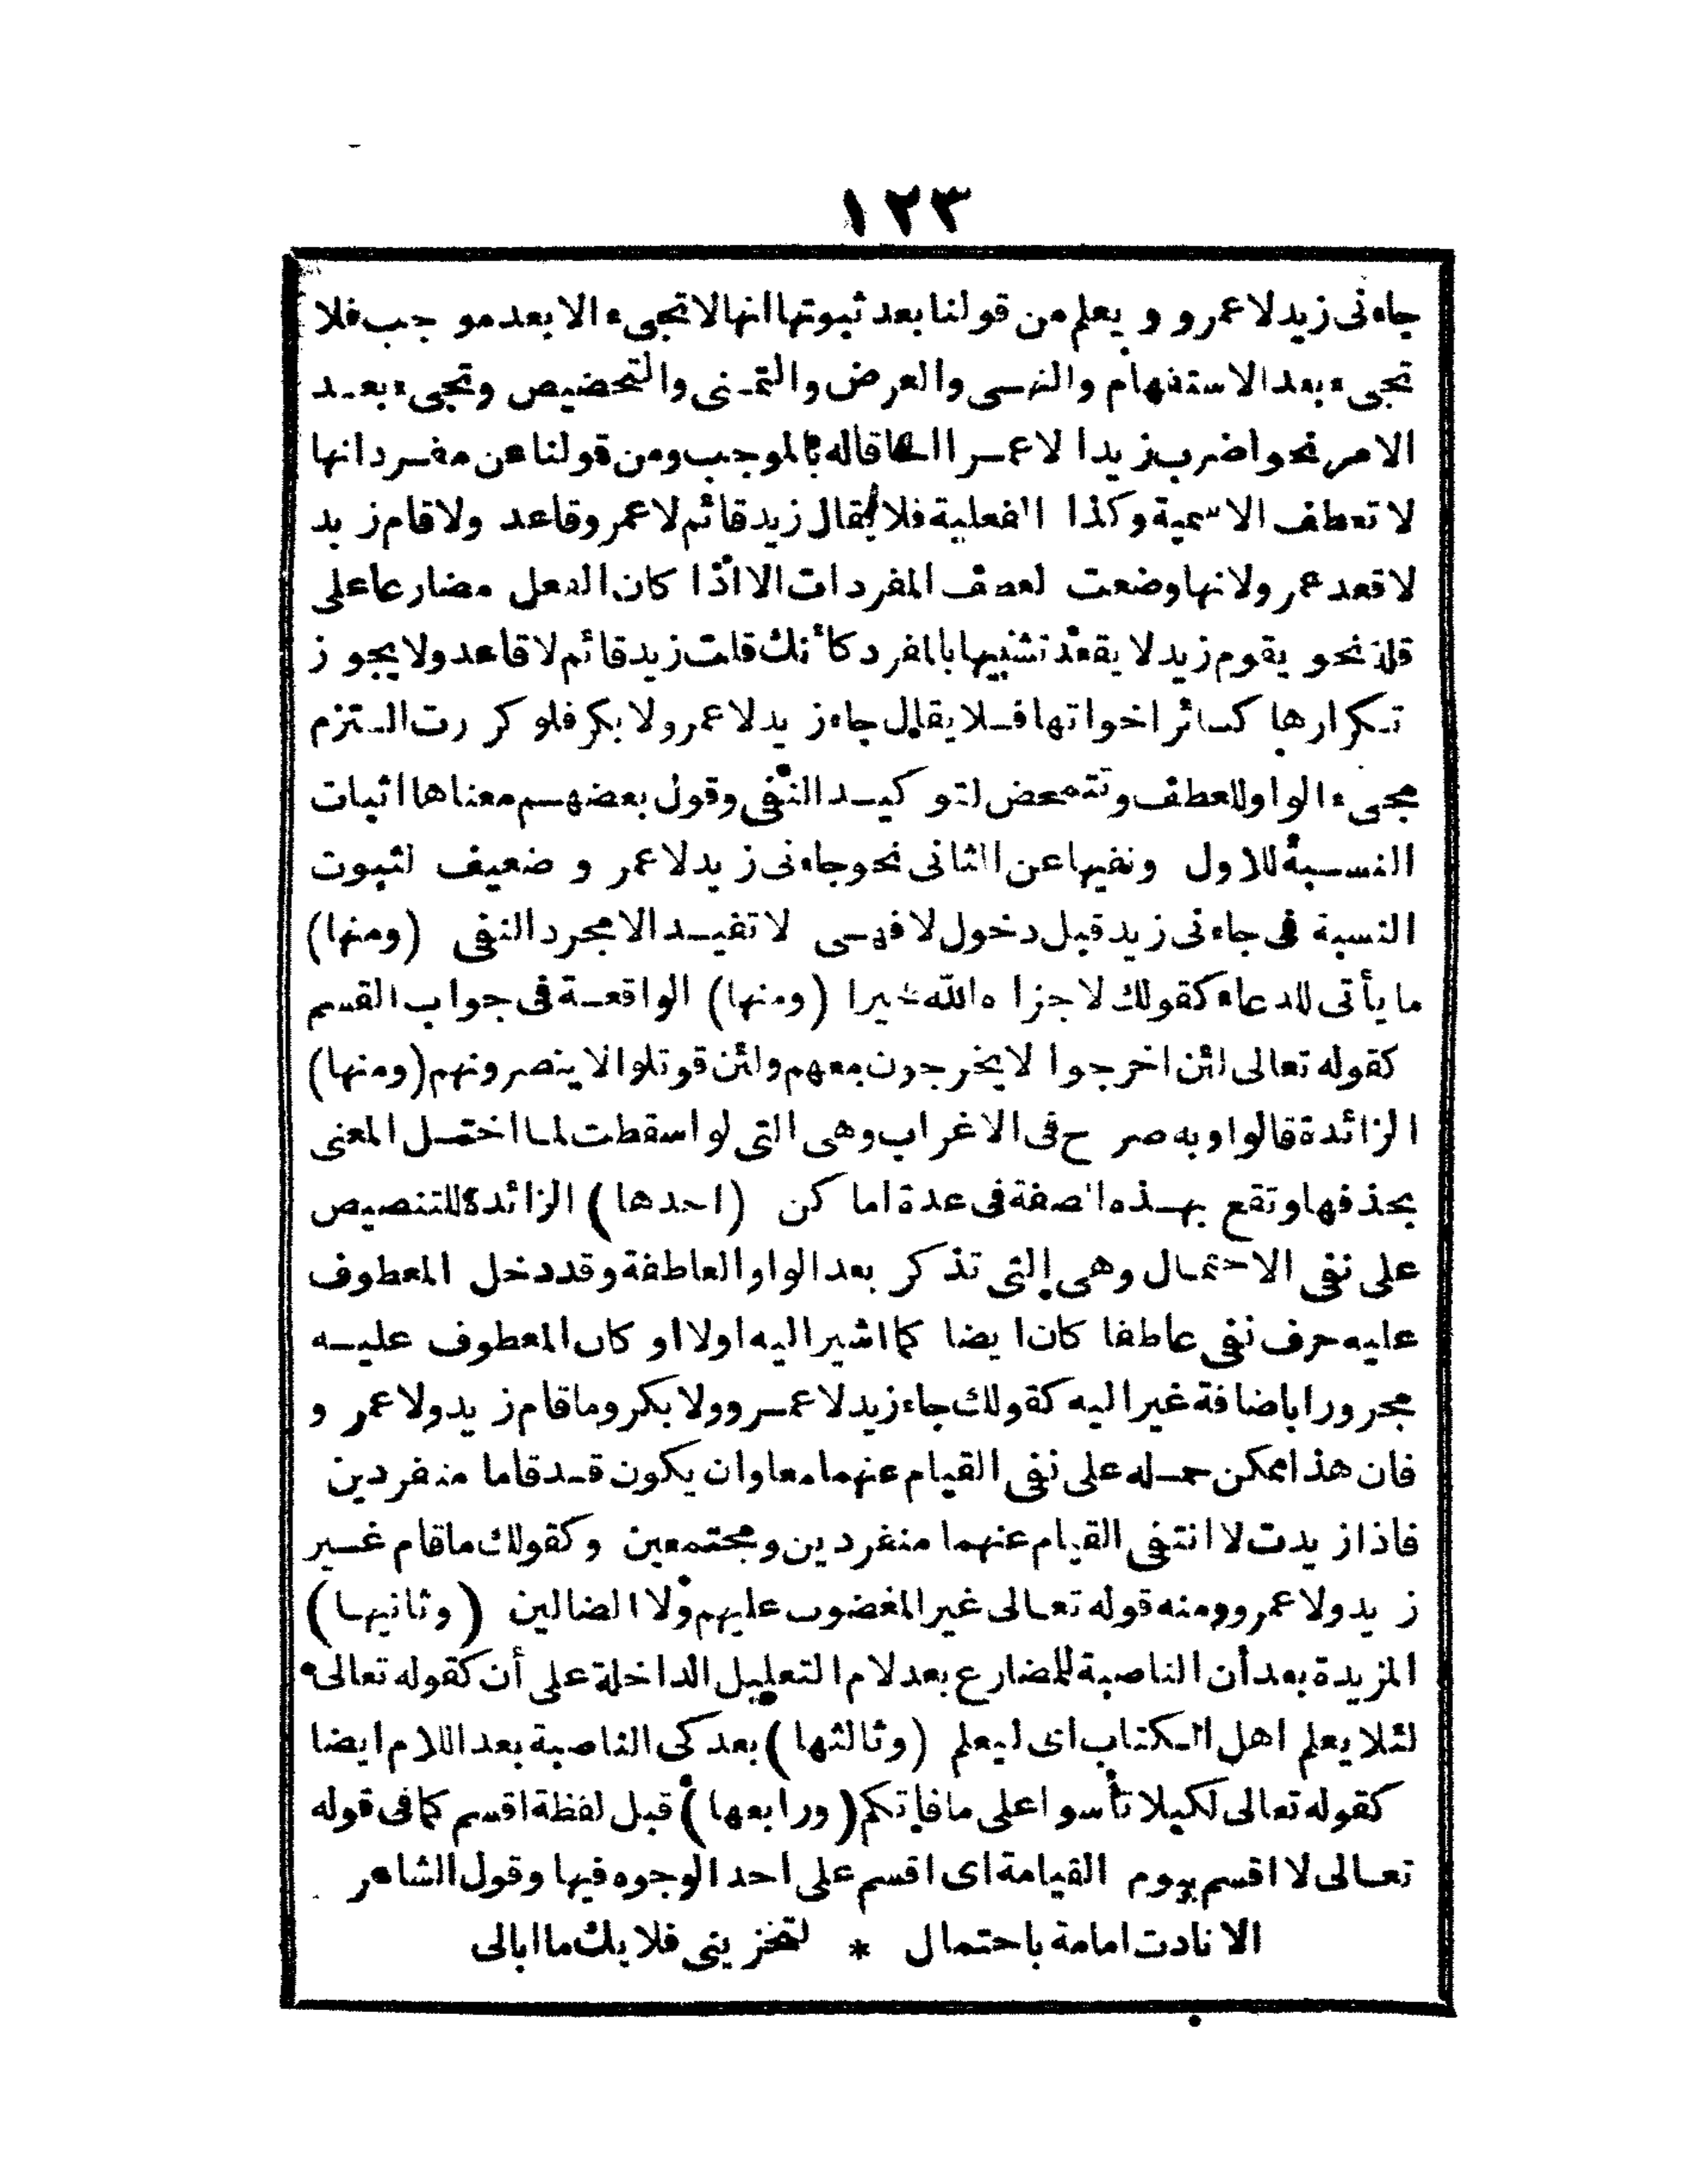 ١٢٣
جاءنى زيد لا عمرو و يعلم من قولنا بعد ثبوتها انها لا تجىء الا بعد موجب فلا
تجىء بعد الاستفهام والنهى والعرض والتمنى والتحضيض وتجىء بعد
الامر نحو اضرب زيدا لا عمرا الحاقا له بالموجب ومن قولنا عن مفرد انها
لا تعطف الاسمية وكذا الفعلية فلا يقال زيد قائم لا عمرو قاعد ولا قام زيد
لا قعد عمرو لانها وضعت لعطف المفردات الا اذا كان الفعل مضارعا على
قلة نحو يقوم زيد لا يقعد تشبيها بالمفرد كأنك قلت زيد قائم لا قاعد ولا يجوز
تكرارها كسائر اخواتها فلا يقال جاء زيد لا عمرو لا بكر فلو كررت التزم
مجىء الواو للعطف وتتمحض لتوكيد النفى وقول بعضهم معناها اثبات
النسبة للاول ونفيها عن الثانى نحو جاءنى زيد لا عمرو ضعيف لثبوت
النسبة فى جاءنى زيد قبل دخول لا فهى لا تفيد الا مجرد النفى (ومنها)
ما يأتى للدعاء كقولك لا جزاه الله خيرا (ومنها) الواقعة فى جواب القسم
كقوله تعالى لئن اخرجوا لا يخرجون معهم ولئن قوتلوا لا ينصرونهم (ومنها)
الزائدة قالوا وبه صرح فى الاغراب وهى التى لو اسقطت لما اختمل المعنى
بحذفها وتقع بهذه الصفة فى عدة اماكن (احدها) الزائدة للتنصيص
على نفى الاحتمال وهى التى تذكر بعد الواو العاطفة وقد دخل المعطوف
عليه حرف نفى عاطفا كان ايضا كما اشير اليه اولا او كان المعطوف عليه
مجرورا باضافة غير اليه كقولك جاء زيد لا عمرو ولا بكر وما قام زيد ولا عمرو
فان هذا ممكن حمله على نفى القيام عنهما معا وان يكون قد قاما منفردين
فاذا زيدت لا انتفى القيام عنهما منفردين ومجتمعين وكقولك ما قام غير
زيد ولا عمرو ومنه قوله تعالى غير المغضوب عليهم ولا الضالين (وثانيها)
المزيدة بعد أن الناصبة للمضارع بعد لام التعليل الداخلة على أن كقوله تعالى
لئلا يعلم اهل الكتاب اى ليعلم (وثالثها) بعد كى الناصبة بعد اللام ايضا
كقوله تعالى لكيلا تأسوا على ما فاتكم (ورابعها) قبل لفظة اقسم كما فى قوله
تعالى لا اقسم بيوم القيامة اى اقسم على احد الوجوه فيها وقول الشاعر
الا نادت امامة باحتمال * لتخزينى فلا بك ما ابالى